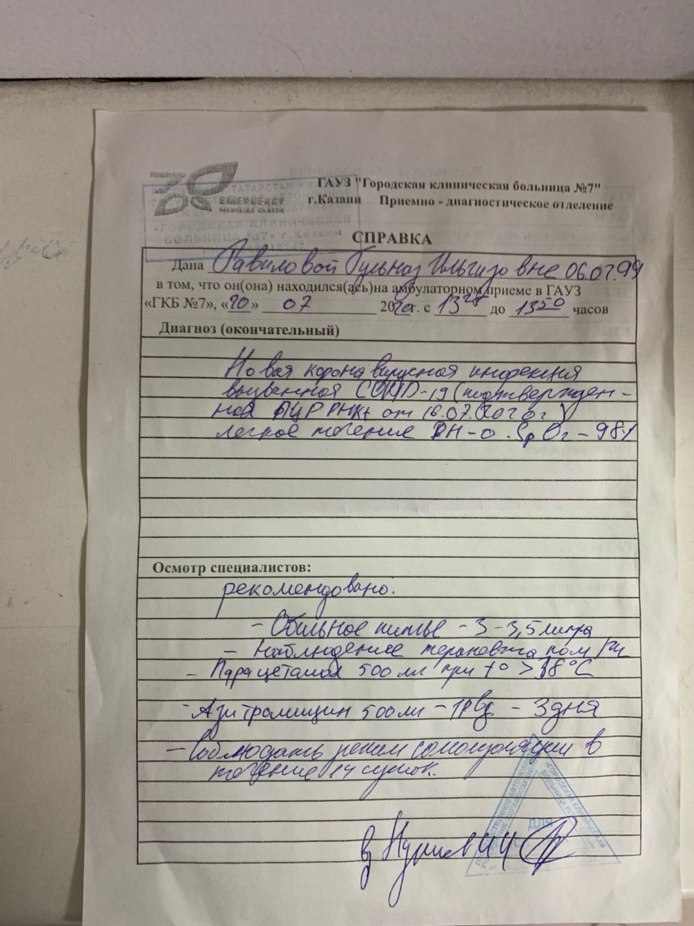 ГАУЗ "Городская клиническая больница №7"
EMERGENCY г.Казани Приемно - диагностическое отделение
СПРАВКА
Дана Равиловой Гульназ Ильгизовне 06.07.99
в том, что он(она) находился(ась)на амбулаторном приеме в ГАУЗ
«ГКБ №7», «20» 07 2020г. с до 13 50 часов
Диагноз (окончательный)
Новая коронавирусная инфекция
вызванная COVID-19 (подтвержден-
ная ПЦР РНК+ от 16.07.2020г)
легкое течение ДН-0. SpO2 - 98%
Осмотр специалистов:
рекомендовано:
- Обильное питье - 3-3,5 литра
- Наблюдение терапевта
- Парацетамол 500 при t° > 38°C
- Азитромицин 500 - 1р/д - 3 дня
- Соблюдать режим самоизоляции в
течение 14 суток.